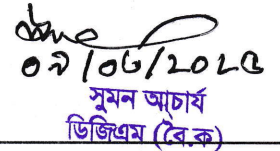 ০৯/০৩/২০২৫
সুমন আচার্য
ডিজিএম (বৈ.ক)